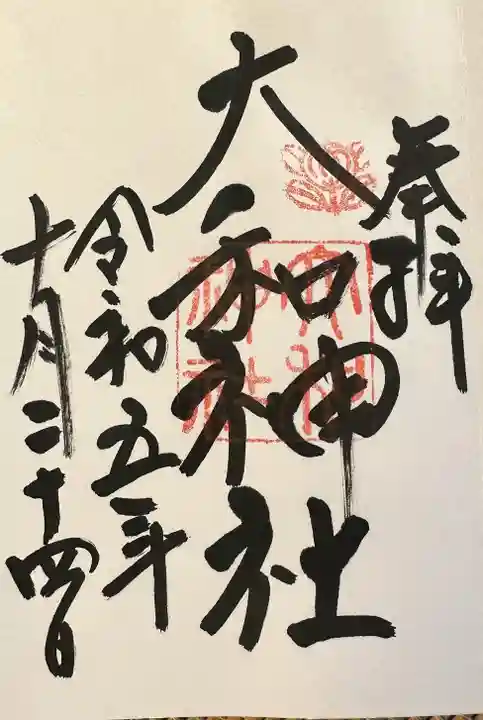 奉拝
大和神社
令和五年
十月二十四日